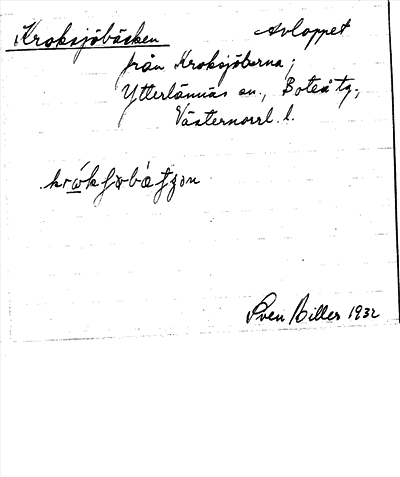 Kroksjöbäcken Avloppet
från Kroksjöarna;
Ytterlännäs sn., Boteå tg.,
Västernorrl. l.
Sven Biller 1932